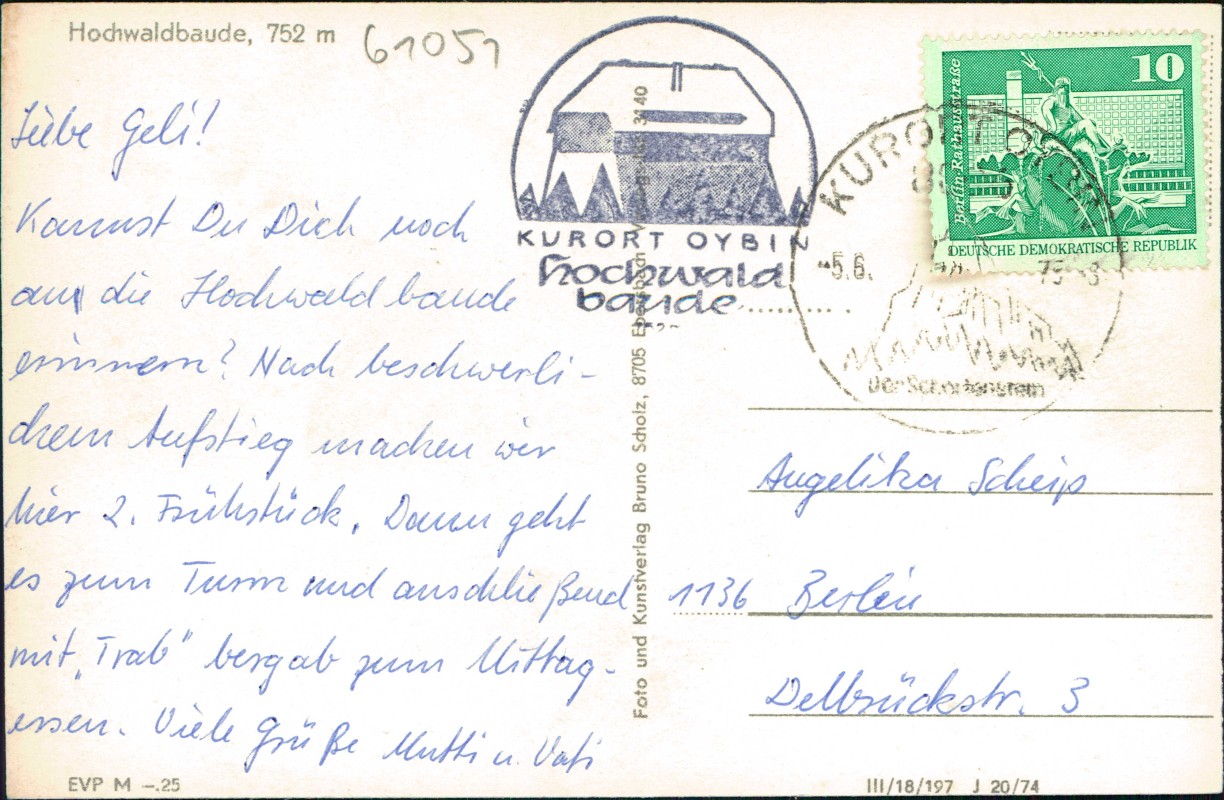 Hochwaldbaude, 752 m
61051
Liebe Geli!
Kannst Du Dich noch
an die Hochwaldbaude
erinnern? Nach beschwerli-
chem Aufstieg machen wir
hier 2. Frühstück. Dann geht
es zum Turm und anschließend
mit „Trab" bergab zum Mittag-
essen. Viele Grüße Mutti u. Vati
EVP M -.25
KURORT OYBIN
Hochwald
baude
Foto und Kunstverlag Bruno Scholz, 8705 Ebersbach
40
10
Berlin, Rathausstraße
DEUTSCHE DEMOKRATISCHE REPUBLIK
KURORT OYBIN
-5.6.
Der Scharfenstein
Angelika Scheip
1136 Berlin
Delbrückstr. 3
III/18/197 J 20/74